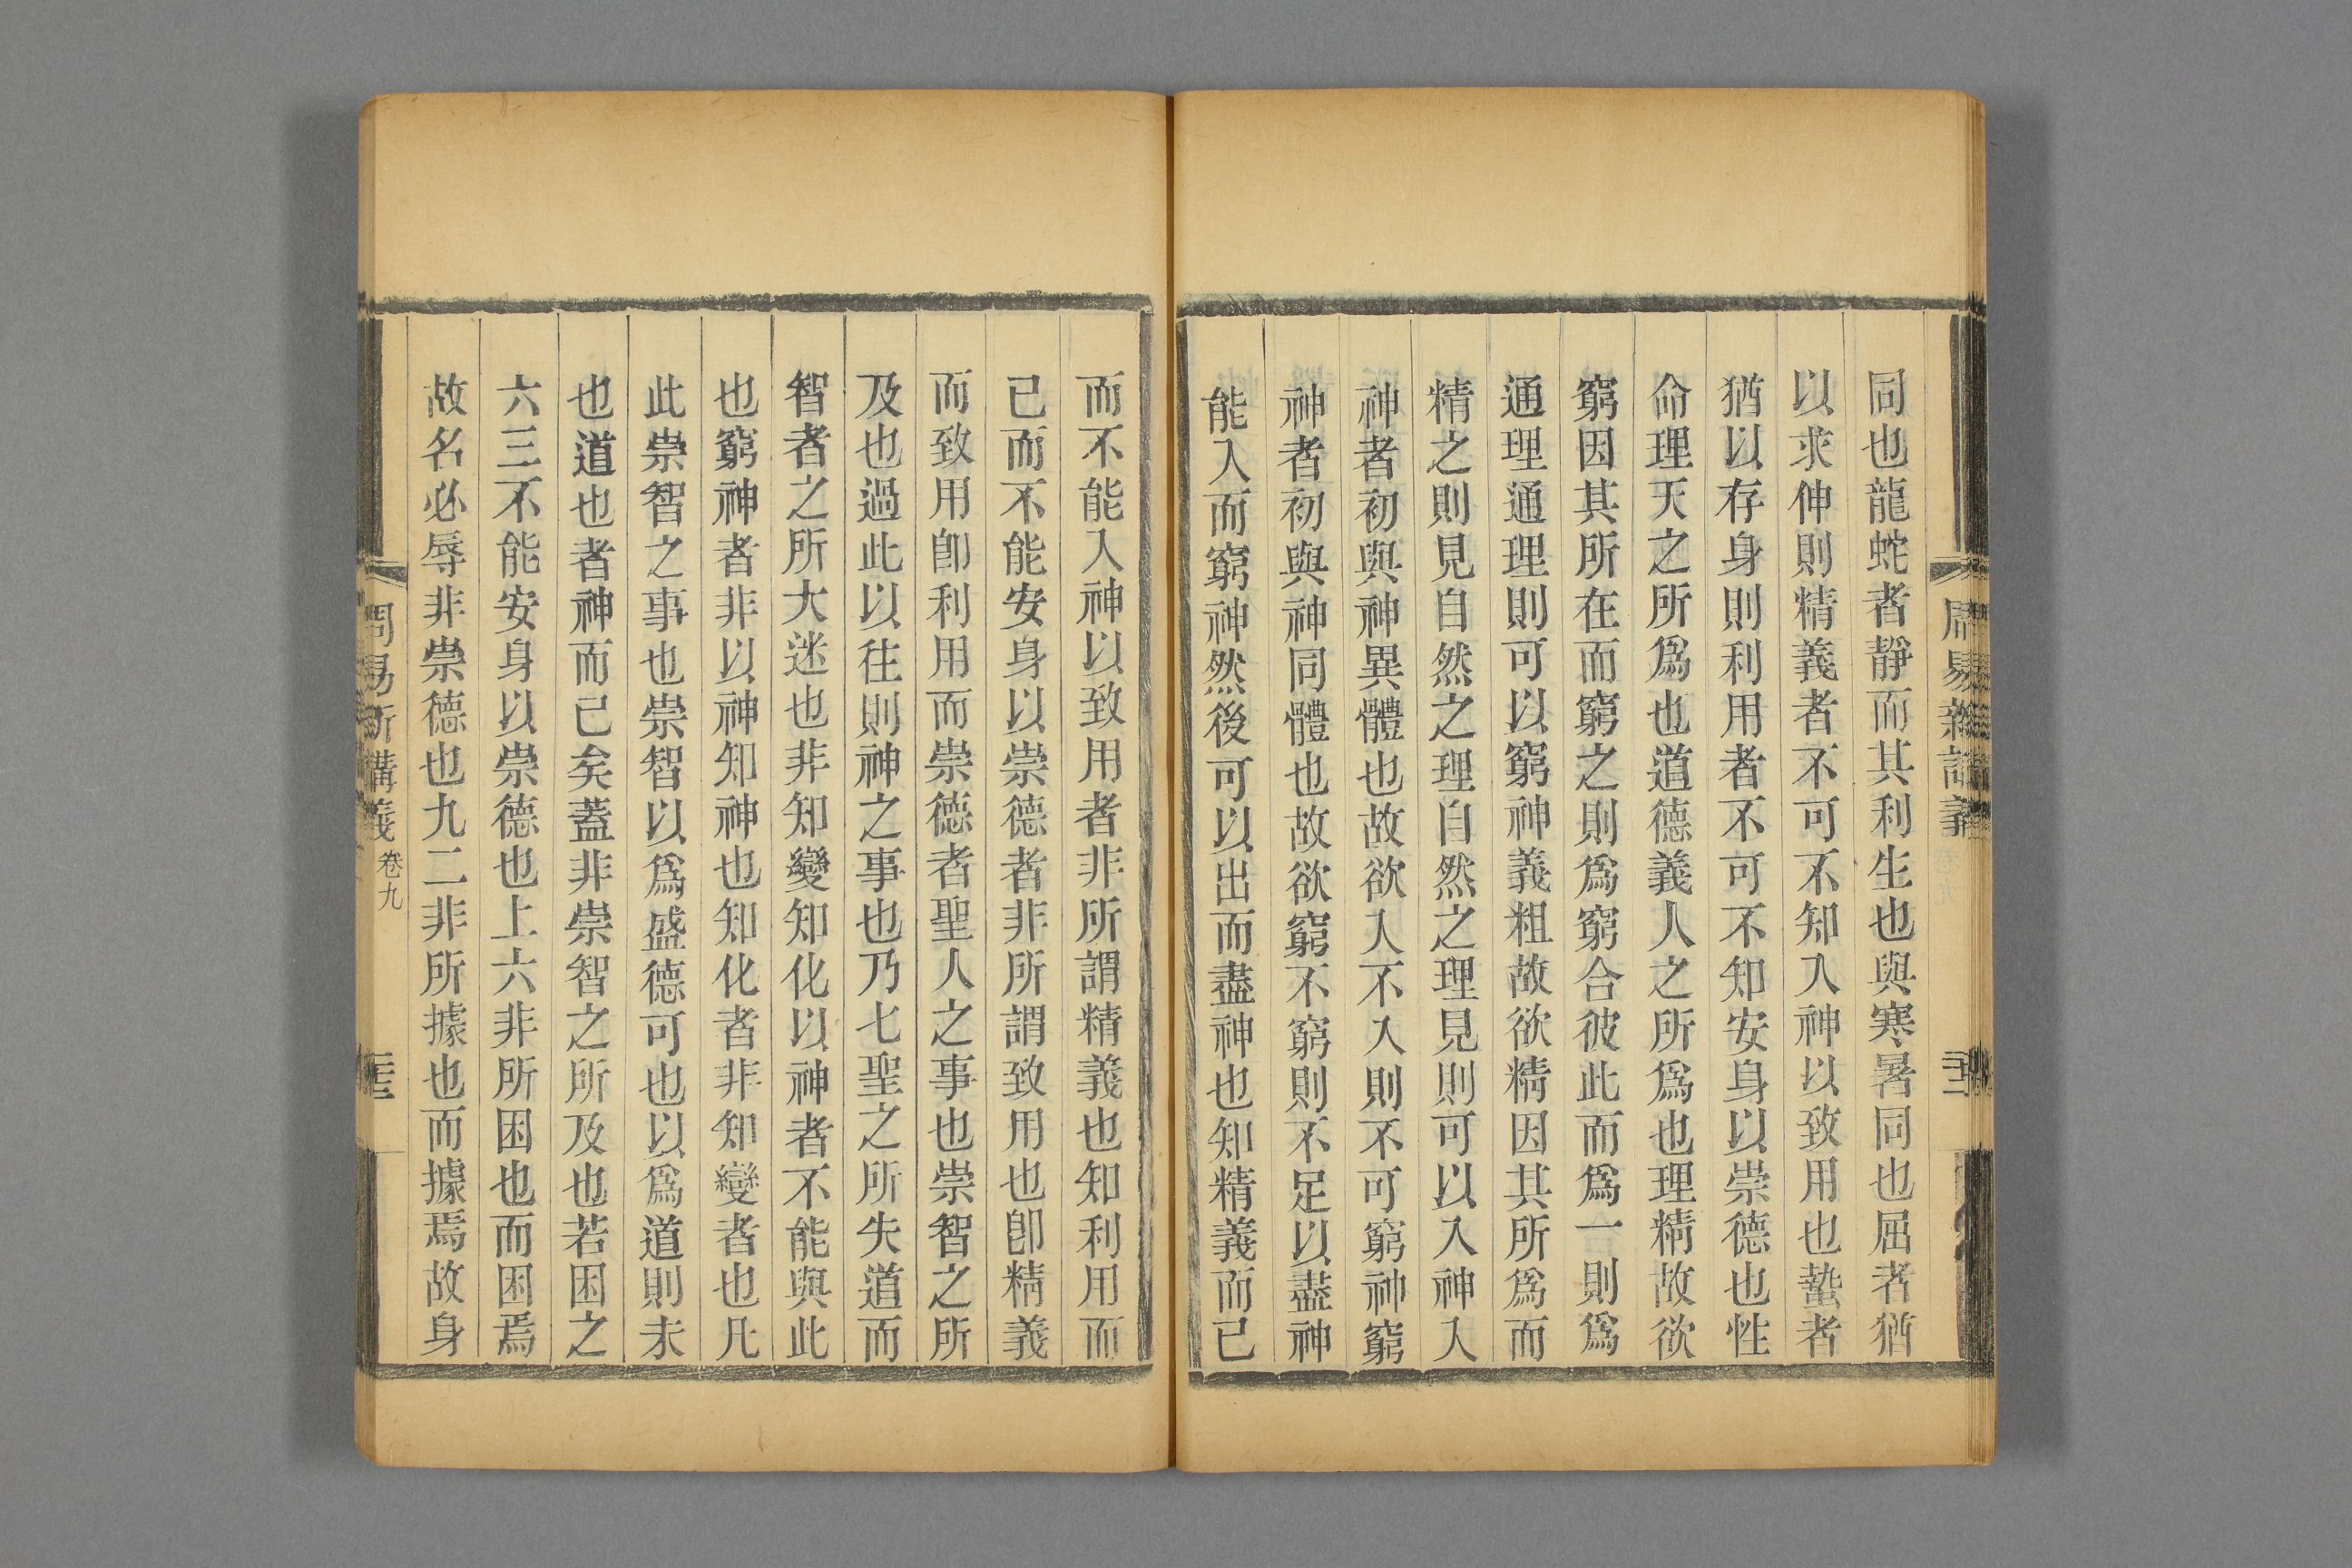 同也龍蛇者靜而其利生也與寒暑同也屈者猶
以求伸則精義者不可不知入神以致用也蟄者
猶以存身則利用者不可不知安身以崇德也性
命理天之所爲也道德義人之所爲也理精故欲
窮因其所在而窮之則爲窮合彼此而爲一則爲
通理通理則可以窮神義粗故欲精因其所爲而
精之則見自然之理自然之理見則可以入神入
神者初與神異體也故欲入不入則不可窮神窮
神者初與神同體也故欲窮不窮則不足以盡神
能入而窮神然後可以出而盡神也知精義而已
而不能入神以致用者非所謂精義也知利用而
已而不能安身以崇德者非所謂致用也卽精義
而致用卽利用而崇德者聖人之事也崇智之所
及也過此以往則神之事也乃七聖之所失道而
智者之所大迷也非知變知化以神者不能與此
也窮神者非以神知神也知化者非知變者也凡
此崇智之事也崇智以爲盛德可也以爲道則未
也道也者神而已矣蓋非崇智之所及也若困之
六三不能安身以崇德也上六非所困也而困焉
故名必辱非崇德也九二非所據也而據焉故身
周易新講義 卷九